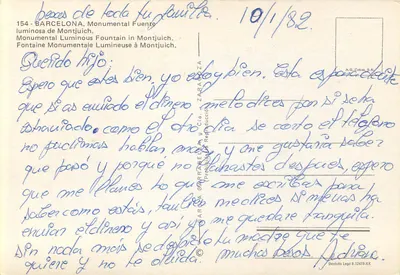 besos de toda tu familia.
10/1/82
154 - BARCELONA. Monumental Fuente
luminosa de Montjuich.
Monumental Luminous Fountain in Montjuich.
Fontaine Monumentale Lumineuse à Montjuich.
Querido hijo:
Espero que estes bien, yo estoy bien. Esta es para decirte
que si as enviado el dinero me lo dices por si se ha
estraviado. como el otro dia se corto el telefono
no pudimos hablar mas, y me gustaria saber
que pasó y porqué no llamastes despues, espero
que me llames ho que me escribas para
saber como estás, tambien me dices si me has ha
enviar el dinero y asi yo me quedare tranquila.
sin nada mas se despide tu madre que te
quiere y no te olvida. muchos besos